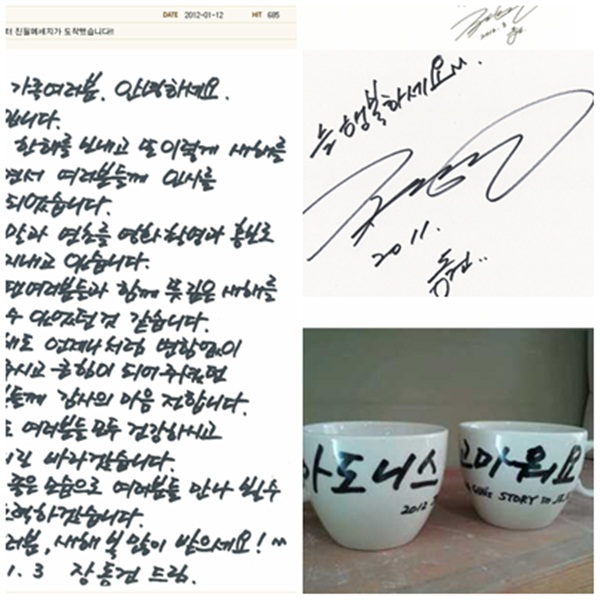 DATE 2012-01-12 HIT 685
터 친필메세지가 도착했습니다!!
가족여러분. 안녕하세요.
입니다.
한해를 보내고 또 이렇게 새해를
면서 여러분들께 인사를
되었습니다.
말과 연초를 영화 촬영과 홍보로
지내고 있습니다.
여러분들과 함께 뜻 깊은 새해를
수 있었던것 같습니다.
해도 언제나처럼 변함없이
주시고 큰힘이 되어주셨던
들께 감사의 마음 전합니다.
여러분들 모두 건강하시고
바라겠습니다.
좋은 모습으로 여러분들 만나 뵐수
노력하겠습니다.
러분, 새해 복 많이 받으세요! ^^
1. 3 장동건 드림.
2012. 3
늘 행복하세요^^.
2011.
동건..
아도니스
2012
고마워요
STORY